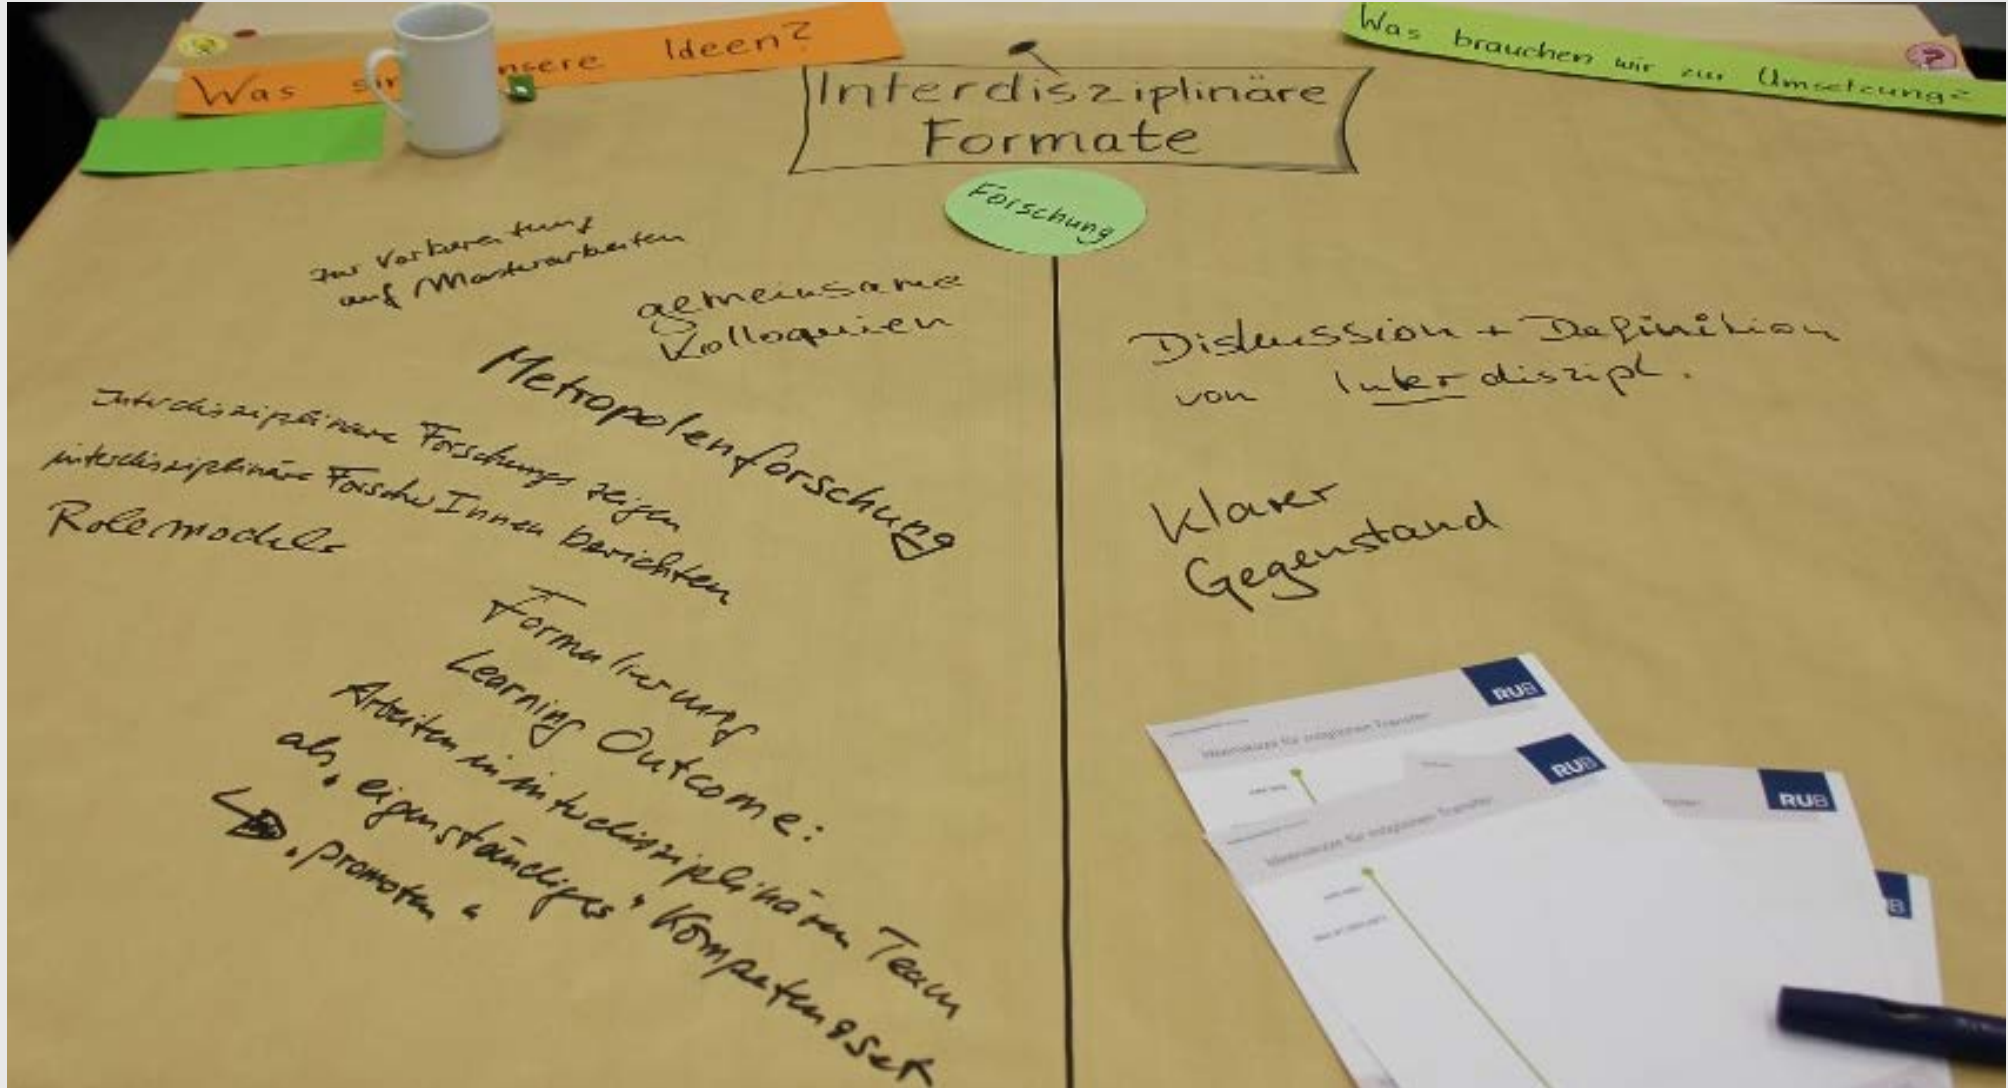 Was sin nsere Ideen?
Was brauchen wir zur Umsetzung?
Interdisziplinäre
Formate
Forschung
zur Vorbereitung
auf Masterarbeiten
gemeinsame
Kolloquien
Metropolenforschung
Interdisziplinäre Forschungs zeigen
interdisziplinäre ForscherInnen berichten
Rolemodels
Formulierung
Learning Outcome:
Arbeiten in interdisziplinären Team
als "eigenständiges" Kompetenzset
"promoten"
Diskussion + Definition
von Interdiszipl.
Klarer
Gegenstand
RUB
Ideenskizze für möglichen Transfer
RUB
Ideenskizze für möglichen Transfer
RUB
B